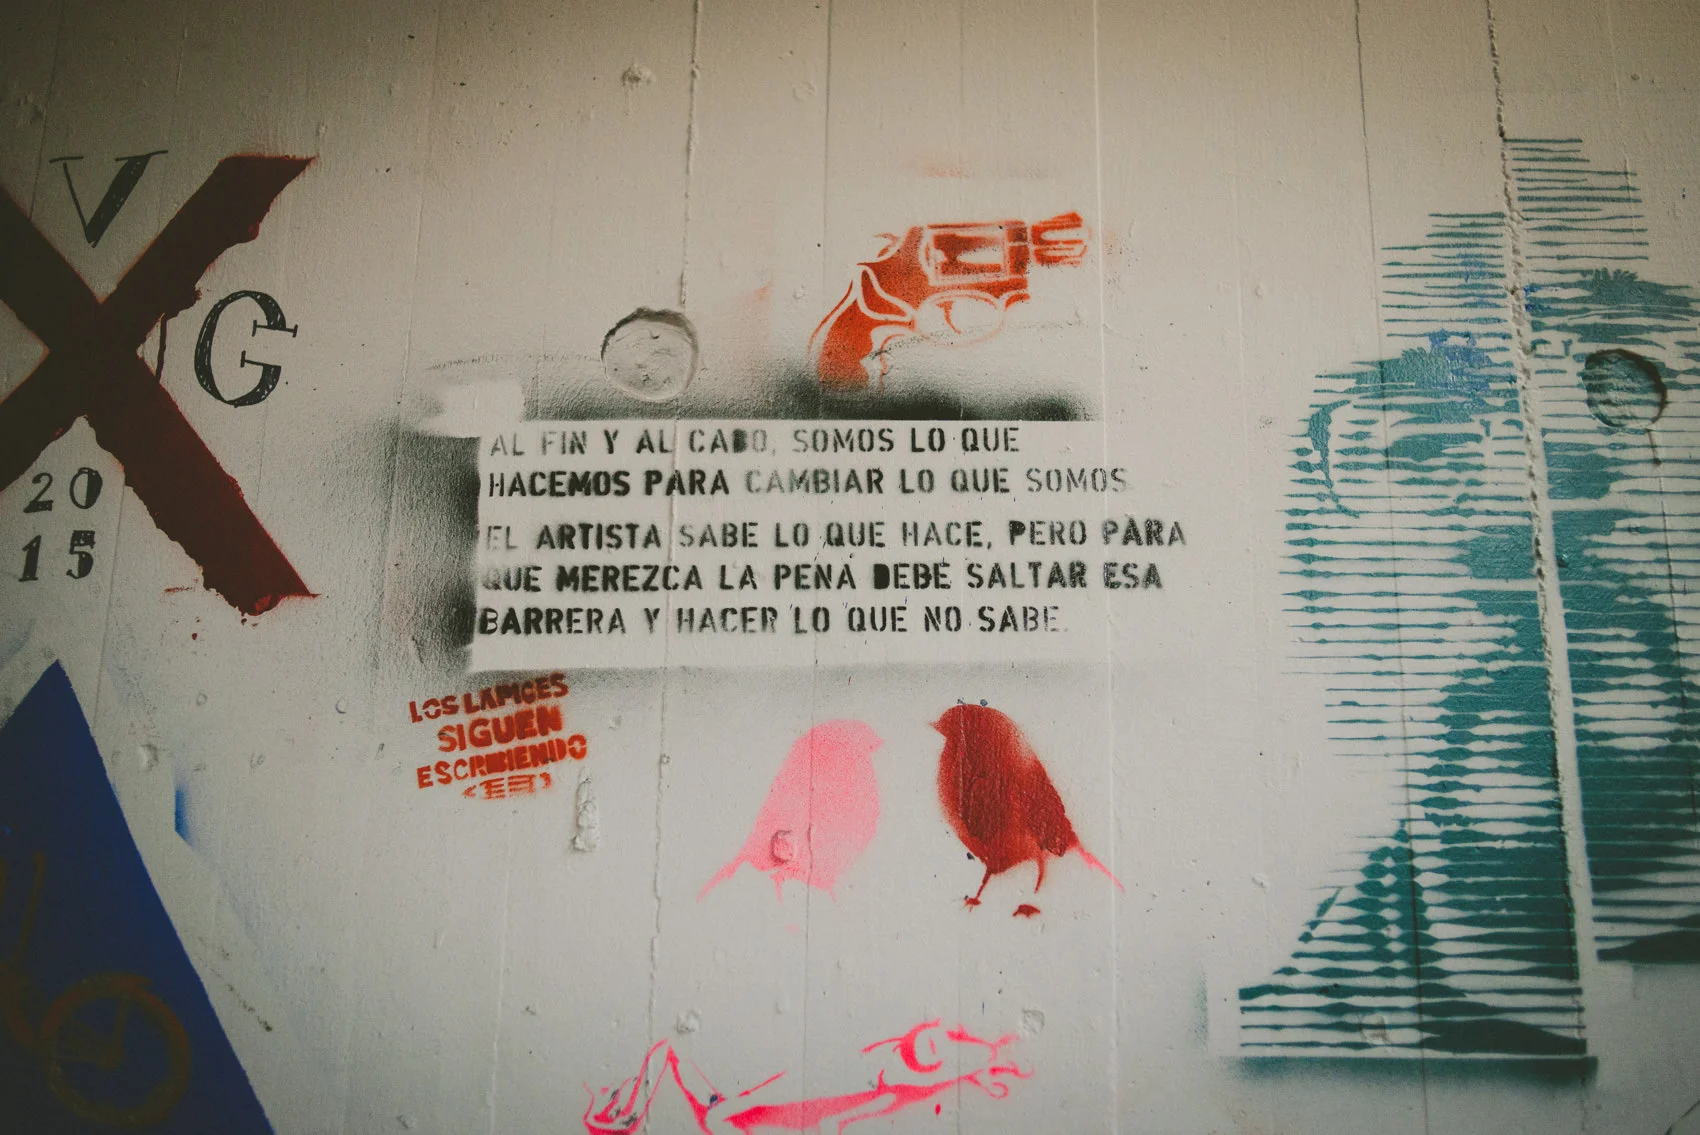 V
G
20
15
AL FIN Y AL CABO, SOMOS LO QUE
HACEMOS PARA CAMBIAR LO QUE SOMOS
EL ARTISTA SABE LO QUE HACE, PERO PARA
QUE MEREZCA LA PENA DEBE SALTAR ESA
BARRERA Y HACER LO QUE NO SABE.
LOS LAPICES
SIGUEN
ESCRIBIENDO